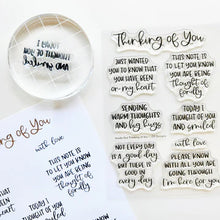 Thinking of You
JUST WANTED
YOU TO KNOW THAT
YOU HAVE BEEN
on my heart
THIS NOTE IS
TO LET YOU KNOW
YOU ARE BEING
thought of
fondly
SENDING
WARM THOUGHTS
and big hugs
TODAY I
THOUGHT OF YOU
and smiled
NOT EVERY DAY
IS a good day
BUT THERE IS
GOOD IN
every day
with love
PLEASE KNOW
WITH ALL YOU ARE
GOING THROUGH
I'm here for you
TODAY I
THOUGHT OF YOU
and smiled
of You
with love
THIS NOTE IS
TO LET YOU KNOW
YOU ARE BEING
thought of
fondly
with love